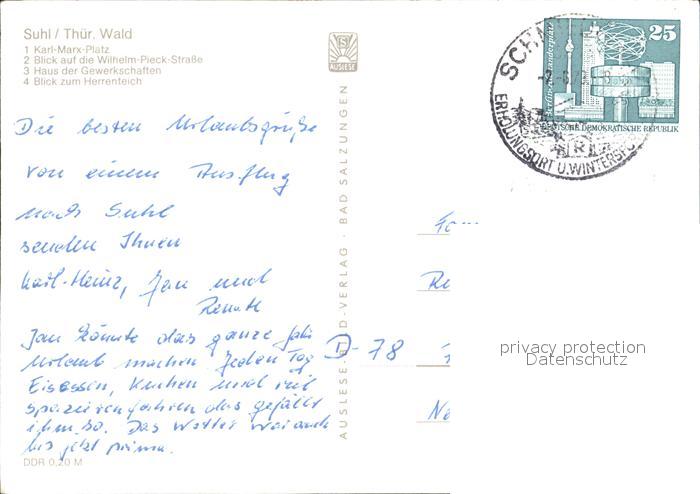 Suhl / Thür. Wald
1 Karl-Marx-Platz
2 Blick auf die Wilhelm-Pieck-Straße
3 Haus der Gewerkschaften
4 Blick zum Herrenteich
Die besten Urlaubsgrüße
von einem Ausflug
nach Suhl
senden Ihnen
Karl-Heinz, Jan und
Renate
Jan könnte das ganze Jahr
Urlaub machen. Jeden Tag
Eisessen, Kuchen und viel
spazierenfahren das gefällt
ihm so. Das Wetter war auch
bis jetzt prima.
DDR 0,20 M
AUSLESE
AUSLESE-BILD-VERLAG · BAD SALZUNGEN
25
DEUTSCHE DEMOKRATISCHE REPUBLIK
ERHOLUNGSORT U. WINTERSP
D-78
privacy protection
Datenschutz